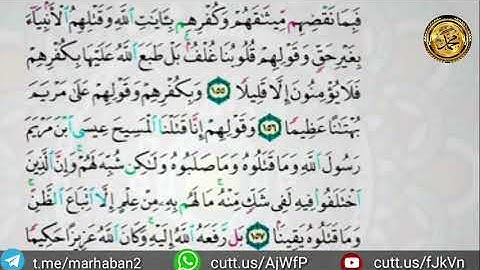 فَبِمَا نَقْضِهِم مِّيثَٰقَهُمْ وَكُفْرِهِم بِـَٔايَٰتِ ٱللَّهِ وَقَتْلِهِمُ ٱلْأَنۢبِيَآءَ
بِغَيْرِ حَقٍّ وَقَوْلِهِمْ قُلُوبُنَا غُلْفٌۢ ۚ بَلْ طَبَعَ ٱللَّهُ عَلَيْهَا بِكُفْرِهِمْ
فَلَا يُؤْمِنُونَ إِلَّا قَلِيلًا ١٥٥ وَبِكُفْرِهِمْ وَقَوْلِهِمْ عَلَىٰ مَرْيَمَ
بُهْتَٰنًا عَظِيمًا ١٥٦ وَقَوْلِهِمْ إِنَّا قَتَلْنَا ٱلْمَسِيحَ عِيسَى ٱبْنَ مَرْيَمَ
رَسُولَ ٱللَّهِ وَمَا قَتَلُوهُ وَمَا صَلَبُوهُ وَلَٰكِن شُبِّهَ لَهُمْ ۚ وَإِنَّ ٱلَّذِينَ
ٱخْتَلَفُوا۟ فِيهِ لَفِى شَكٍّ مِّنْهُ ۚ مَا لَهُم بِهِۦ مِنْ عِلْمٍ إِلَّا ٱتِّبَاعَ ٱلظَّنِّ ۚ
وَمَا قَتَلُوهُ يَقِينًۢا ١٥٧ بَل رَّفَعَهُ ٱللَّهُ إِلَيْهِ ۚ وَكَانَ ٱللَّهُ عَزِيزًا حَكِيمًا
t.me/marhaban2 cutt.us/AjWfP cutt.us/fJkVn